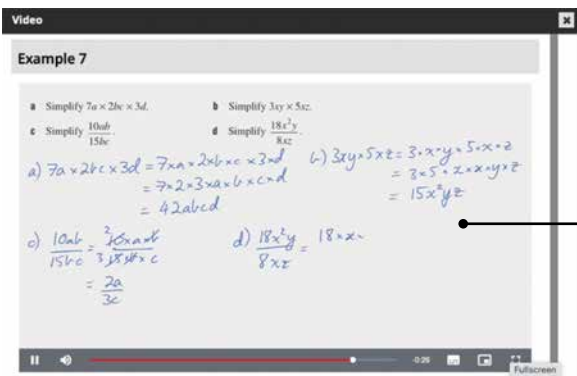 Video
Example 7
a Simplify 7a × 2bc × 3d.
b Simplify 3xy × 5xz.
c Simplify 10ab/15bc.
d Simplify 18x²y/8xz.
a) 7a × 2bc × 3d = 7×a × 2×b×c × 3×d
= 7×2×3×a×b×c×d
= 42abcd
b) 3xy × 5xz = 3×x×y×5×x×z
= 3×5×x×x×y×z
= 15x²yz
c) 10ab/15bc = 2 10×a×b/3 15×b×c
= 2a/3c
d) 18x²y/8xz = 18×x×
-0:26
Fullscreen